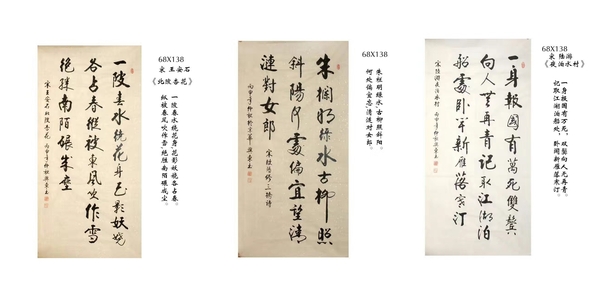 68X138
宋 王安石
《北陂杏花》
一陂春水绕花身花影妖娆各占春。
纵被春风吹作雪，绝胜南陌碾成尘。
一陂春水繞花身花影妖嬈
各占春縱被東風吹作雪
絕勝南陌碾成塵
宋王安石北陂杏花
68X138
朱栏明绿水，古柳照斜阳。
何处偏宜望，清涟对女郎。
朱欄明綠水古柳照
斜陽何處偏宜望清
漣對女郎
宋歐陽修三橋詩
68X138
宋 陆游
《夜泊水村》
一身报国有万死，双鬓向人无再青。
记取江湖泊船处，卧闻新雁落寒汀。
一身報國有萬死雙鬢
向人無再青記取江湖泊
船處卧聞新雁落寒汀
宋陸游夜泊水村